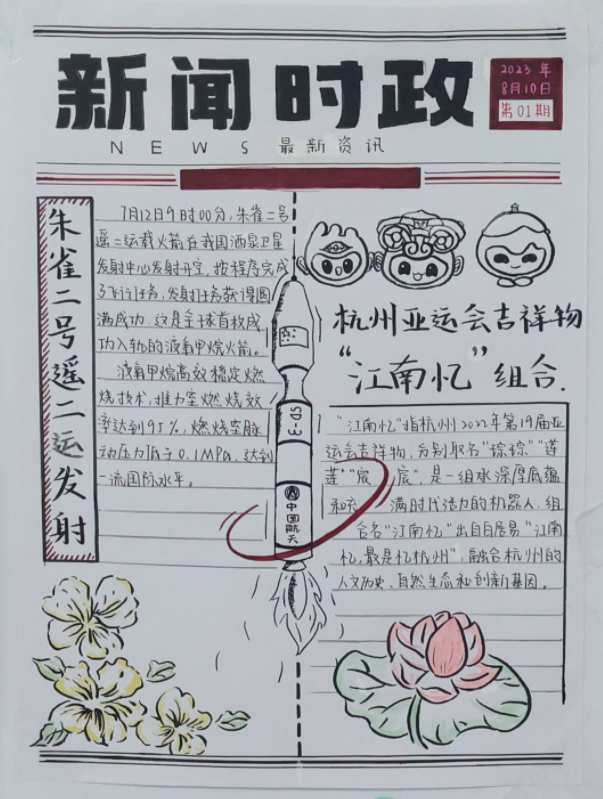 新闻时政
2023年
8月10日
第01期
NEWS 最新资讯
朱雀二号遥二运发射
7月12日9时00分,朱雀二号
遥二运载火箭在我国酒泉卫星
发射中心发射升空,按程序完成
了飞行任务,发射任务获得圆
满成功。这是全球首枚成
功入轨的液氧甲烷火箭。
液氧甲烷高效稳定燃
烧技术,推力室燃烧效
率达到95%,燃烧室脉
动压力低于0.1MPa,达到
一流国际水平。
SD-3
中国航天
杭州亚运会吉祥物
“江南忆”组合.
“江南忆”指杭州2022年第19届亚
运会吉祥物,分别取名“琮琮”“莲
莲”“宸宸”,是一组承深厚底蕴
和充满时代活力的机器人,组
合名“江南忆”出自白居易“江南
忆,最是忆杭州”,融合杭州的
人文历史、自然生态和创新基因。